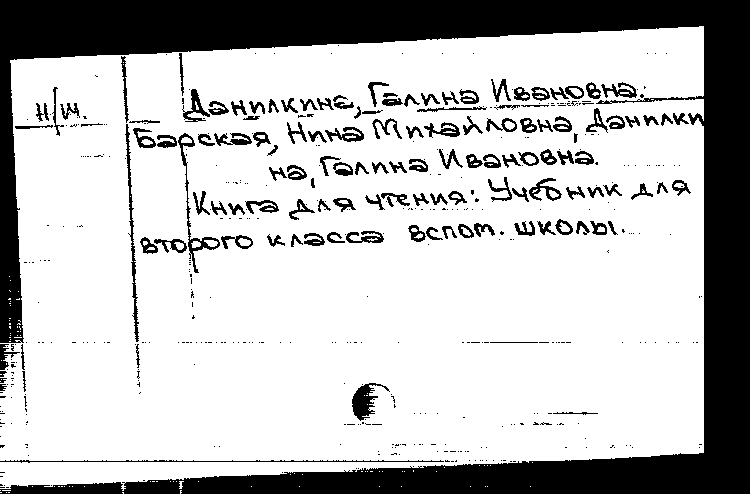 Данилкина, Галина Ивановна.
н/ш.
Барская, Нина Михайловна, Данилки
на, Галина Ивановна.
Книга для чтения: Учебник для
второго класса вспом. школы.